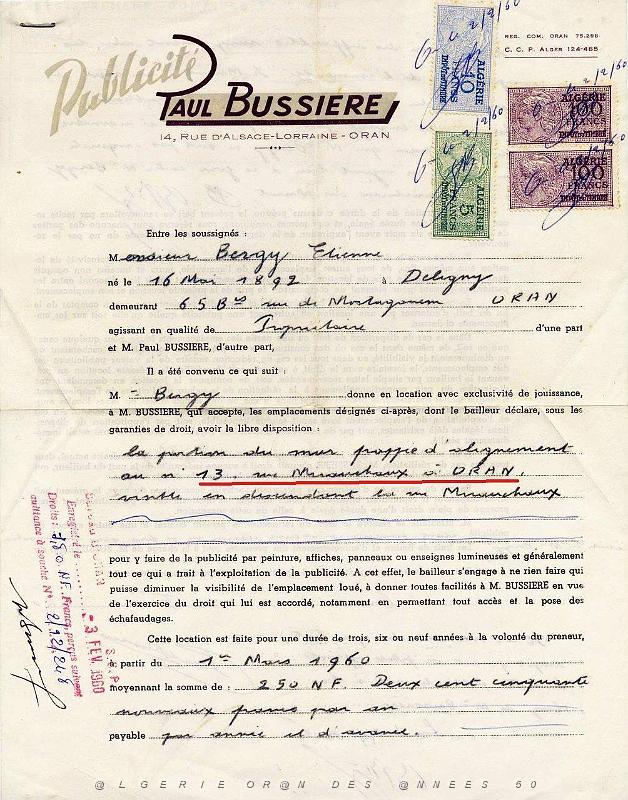 Publicité
PAUL BUSSIERE
14, RUE D'ALSACE-LORRAINE - ORAN
REG. COM. ORAN 75.298
C. C. P. ALGER 124-465
2/2/60
ALGÉRIE
10
FRANCS
2/2/60
ALGÉRIE
5
FRANCS
2/2/60
ALGÉRIE
100
FRANCS
ALGÉRIE
100
FRANCS
Entre les soussignés :
Monsieur Bergy Etienne
né le 16 Mai 1892 à Deligny
demeurant 65 Bis rue de Mostaganem ORAN
agissant en qualité de Propriétaire d'une part
et M. Paul BUSSIERE, d'autre part,
Il a été convenu ce qui suit :
M. Bergy donne en location avec exclusivité de jouissance,
à M. BUSSIERE, qui accepte, les emplacements désignés ci-après, dont le bailleur déclare, sous les
garanties de droit, avoir la libre disposition :
la portion du mur frappé d'alignement
au n° 13. rue Mirauchaux à ORAN.
visible en descendant la rue Mirauchaux
pour y faire de la publicité par peinture, affiches, panneaux ou enseignes lumineuses et généralement
tout ce qui a trait à l'exploitation de la publicité. A cet effet, le bailleur s'engage à ne rien faire qui
puisse diminuer la visibilité de l'emplacement loué, à donner toutes facilités à M. BUSSIERE en vue
de l'exercice du droit qui lui est accordé, notamment en permettant tout accès et la pose des
échafaudages.
Cette location est faite pour une durée de trois, six ou neuf années à la volonté du preneur,
à partir du 1er Mars 1960
moyennant la somme de : 250 NF. Deux cent cinquante
nouveaux francs par an
payable par année et d'avance.
S. S. P.
- 3 FEV. 1960
Enregistré le
Droits : 7,50 NF. Francs, perçus suivant
quittance à souche N° 2/22/248
@LGERIE OR@N DES @NNEES 50